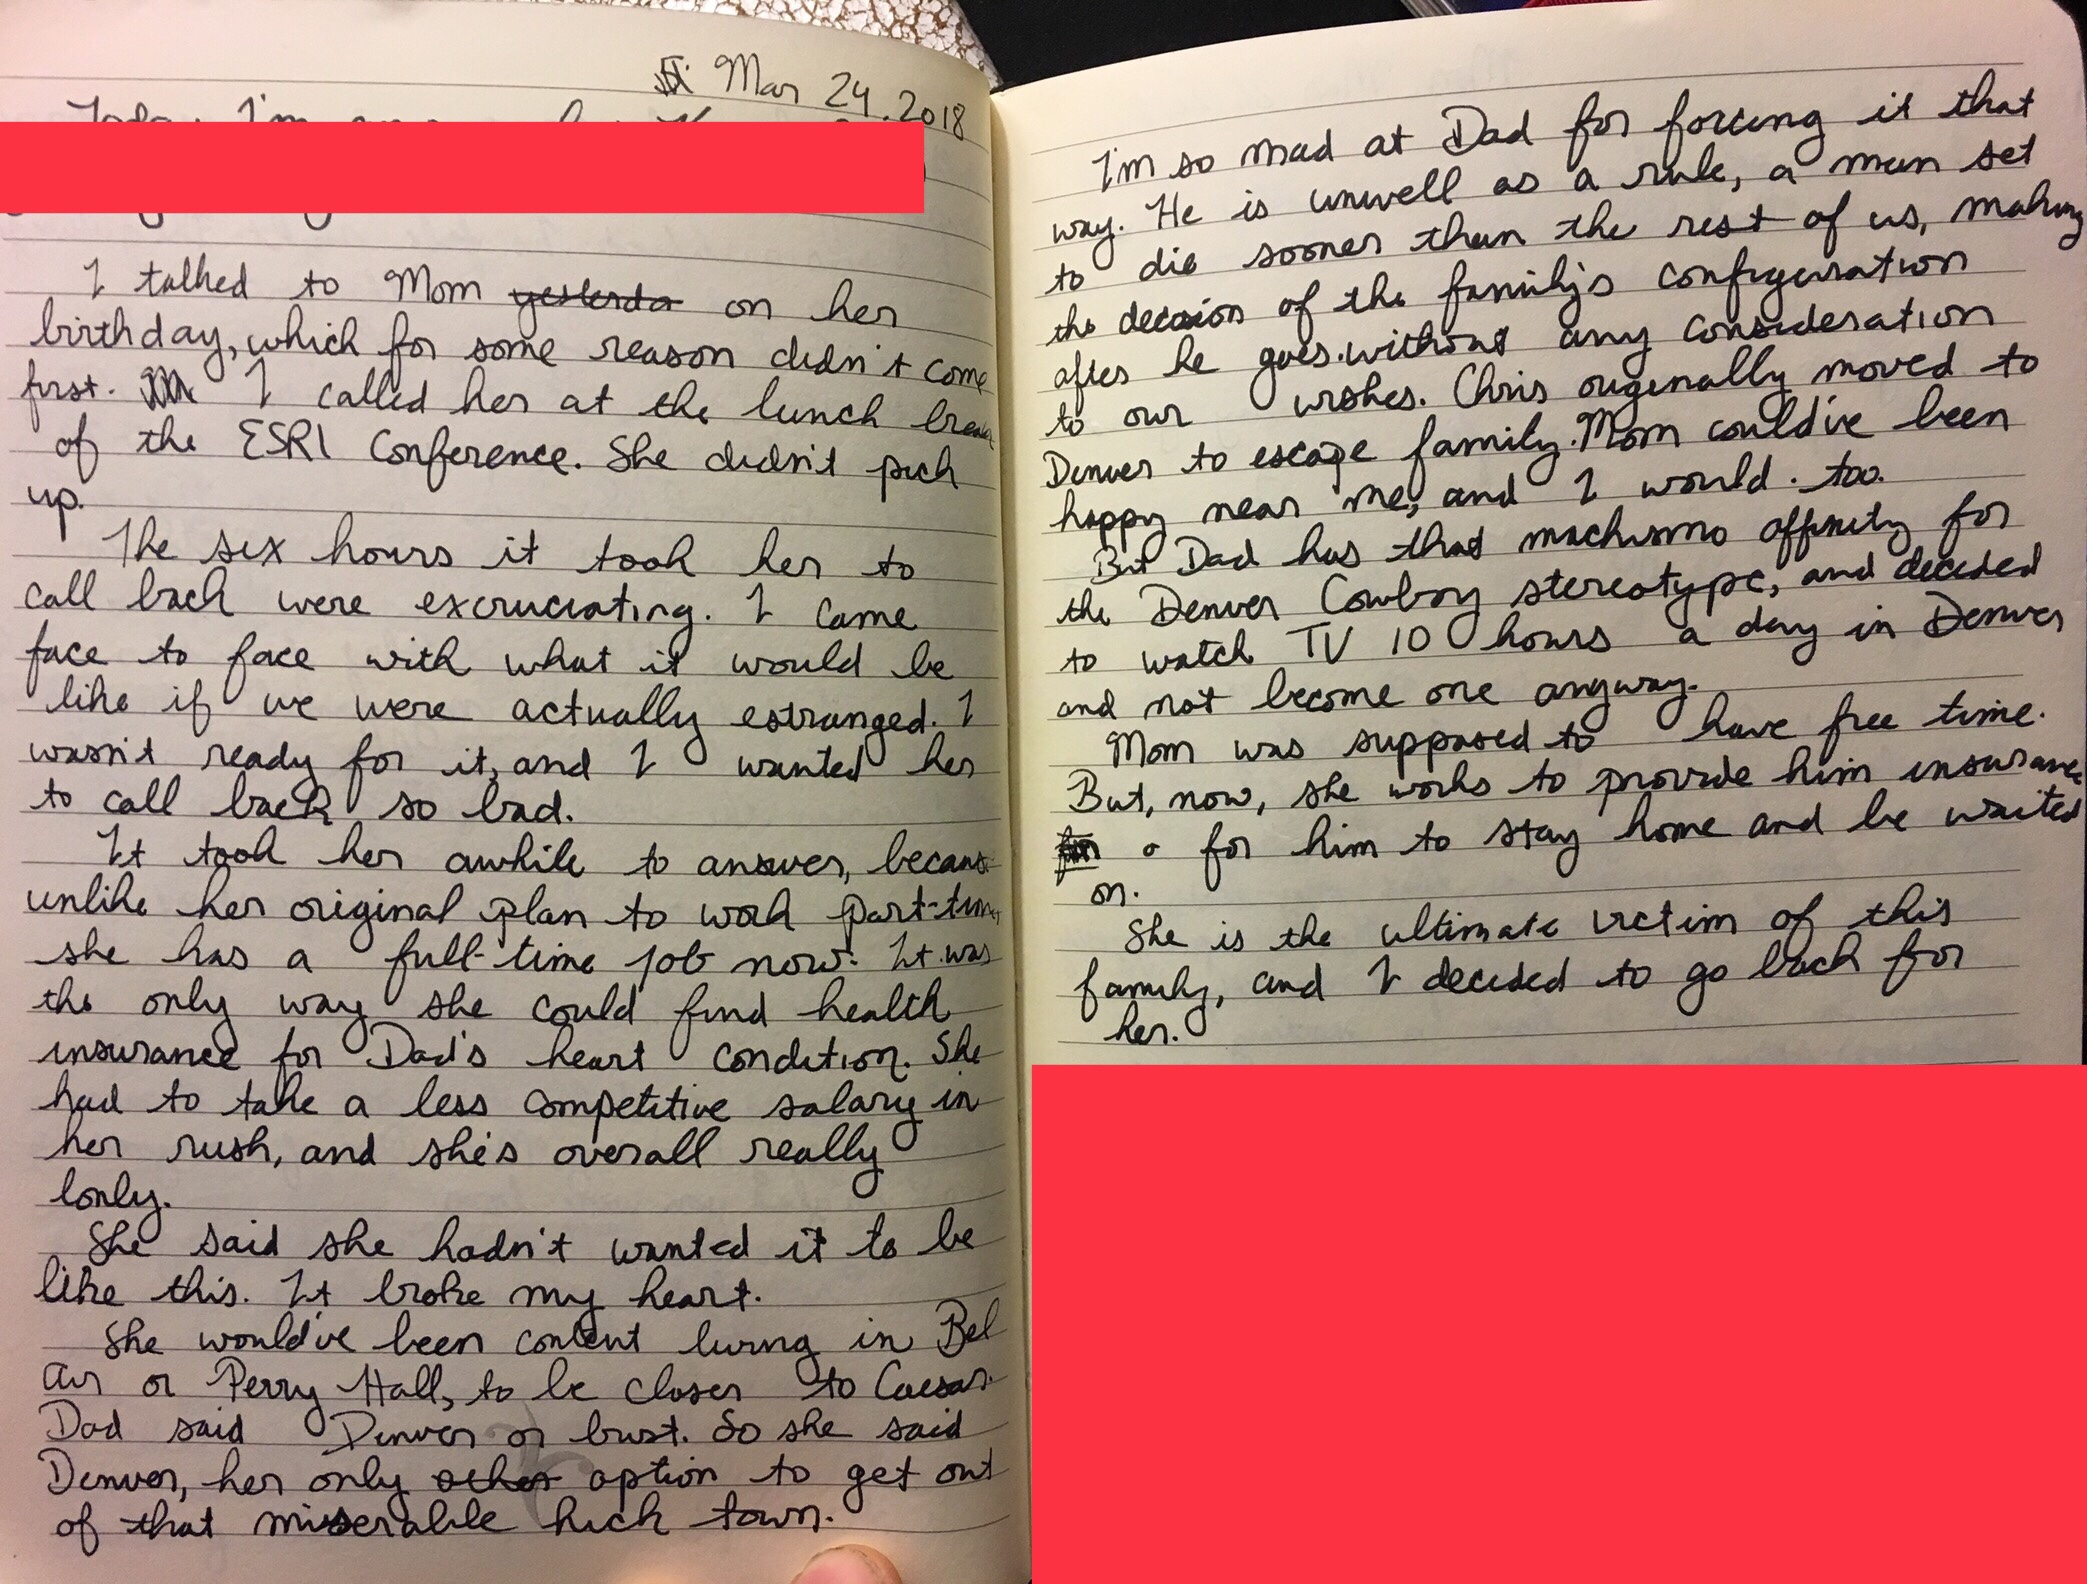 Mar 24, 2018
Today I'm
I talked to Mom yesterda on her
birthday, which for some reason didn't come
first. I called her at the lunch break
of the ESRI Conference. She didn't pick
up.
The six hours it took her to
call back were excruciating. I came
face to face with what it would be
like if we were actually estranged. I
wasn't ready for it, and I wanted her
to call back so bad.
It took her awhile to answer, becaus
unlike her original plan to work part-time,
she has a full-time job now. It was
the only way she could find health
insurance for Dad's heart condition. She
had to take a less competitive salary in
her rush, and she's overall really
lonly.
She said she hadn't wanted it to be
like this. It broke my heart.
She would've been content living in Bel
Air or Perry Hall, to be closer to Caesar.
Dad said Denver or bust. So she said
Denver, her only other option to get out
of that miserable hick town.
I'm so mad at Dad for forcing it that
way. He is unwell as a rule, a man set
to die sooner than the rest of us, making
the decision of the family's configuration
after he goes without any consideration
to our wishes. Chris originally moved to
Denver to escape family. Mom could've been
happy near me, and I would. too.
But Dad has that machismo affinity for
the Denver Cowboy stereotype, and decided
to watch TV 10 hours a day in Denver
and not become one anyway.
Mom was supposed to have free time.
But, now, she works to provide him insurance
for him to stay home and be waited
on.
She is the ultimate victim of this
family, and I decided to go back for
her.